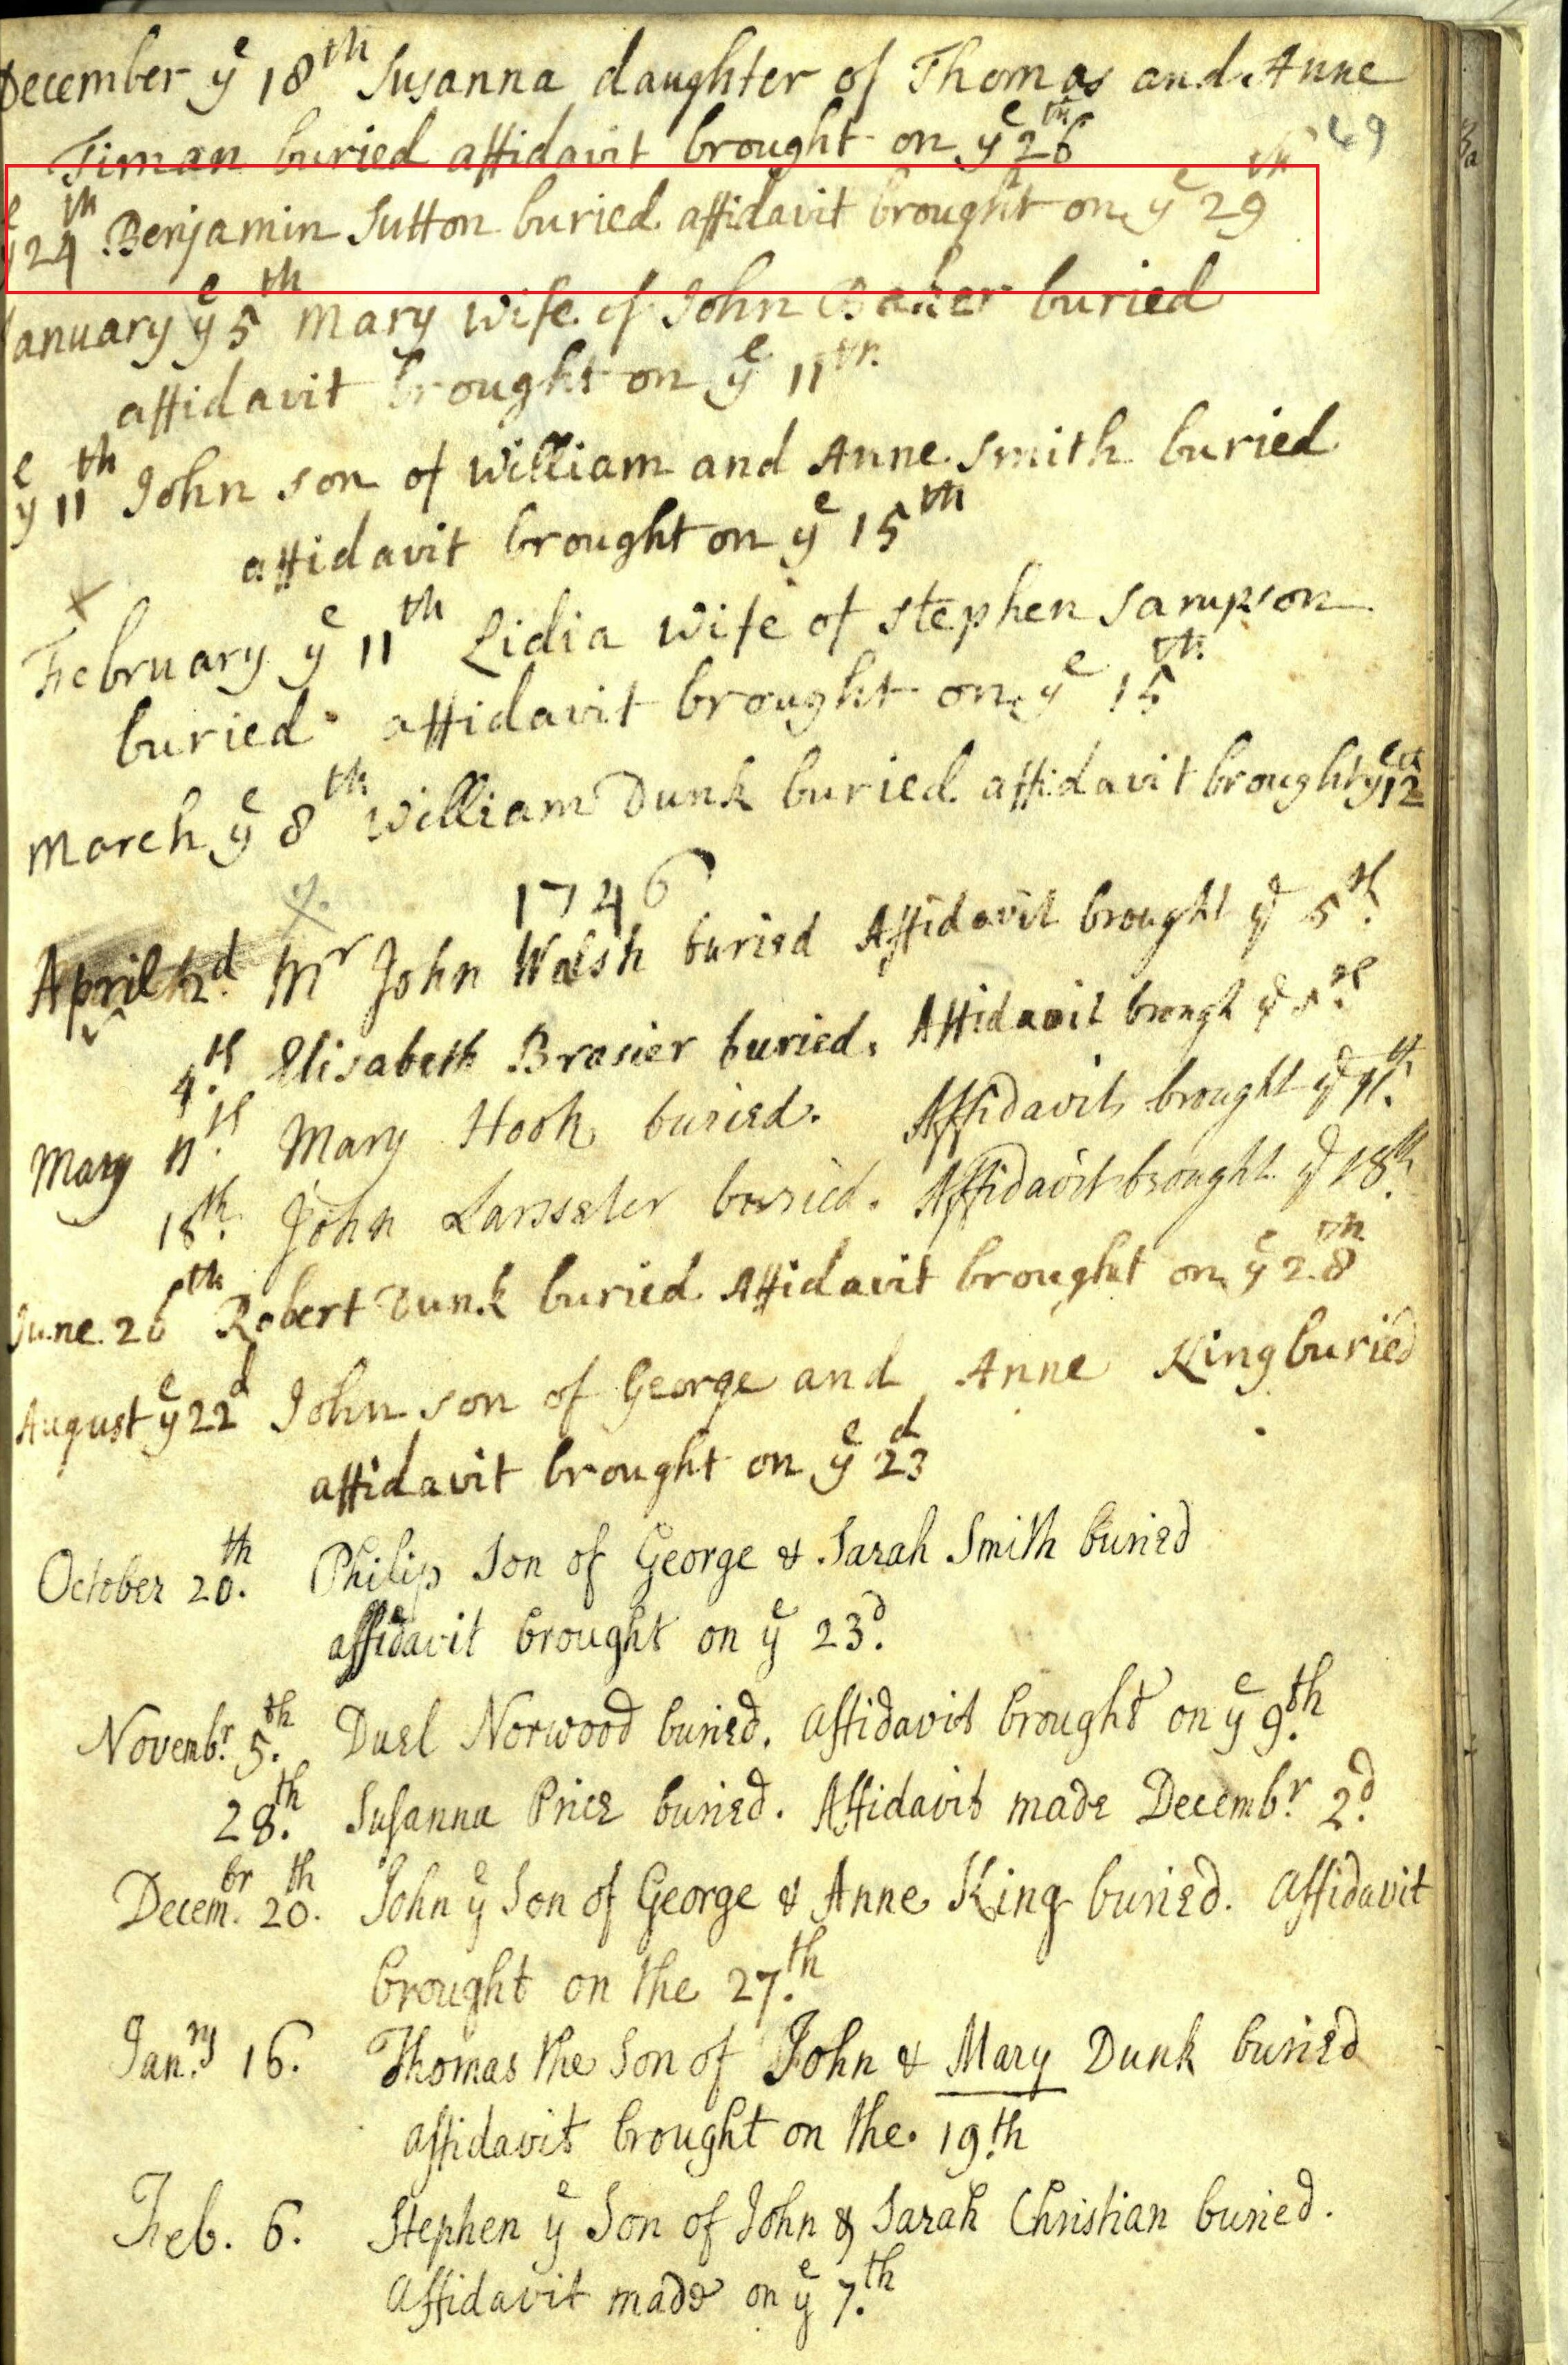 December ye 18th Susanna daughter of Thomas and Anne
Timan buried affidavit brought on ye 26th
49
ye 24th Benjamin Sutton buried affidavit brought on ye 29th
January ye 5th Mary wife of John Baker buried
affidavit brought on ye 11th
ye 11th John son of William and Anne Smith buried
affidavit brought on ye 15th
February ye 11th Lidia wife of Stephen Sampson
buried affidavit brought on ye 15th
March ye 8th William Dunk buried affidavit brought ye 12th
1746
April 2d Mr John Walsh buried Affidavit brought ye 5th
4th Elisabeth Brasier buried. Affidavit brough ye
May 11th Mary Hook buried. Affidavit brought ye
18th John buried. Affidavit brought ye 18th
June 26th Robert Dunk buried Affidavit brought on ye 28th
August ye 22d John son of George and Anne King buried
affidavit brought on ye 23d
October 20th. Philip Son of George & Sarah Smith buried
affidavit brought on ye 23d.
Novembr 5th. Duel Norwood buried. affidavit brought on ye 9th.
28th. Susanna Price buried. Affidavit made Decembr 2d.
Decembr 20th. John ye Son of George & Anne King buried. affidavit
brought on the 27th.
Janry 16. Thomas the Son of John & Mary Dunk buried
affidavit brought on the. 19th
Feb. 6. Stephen ye Son of John & Sarah Christian buried.
affidavit made on ye 7th.